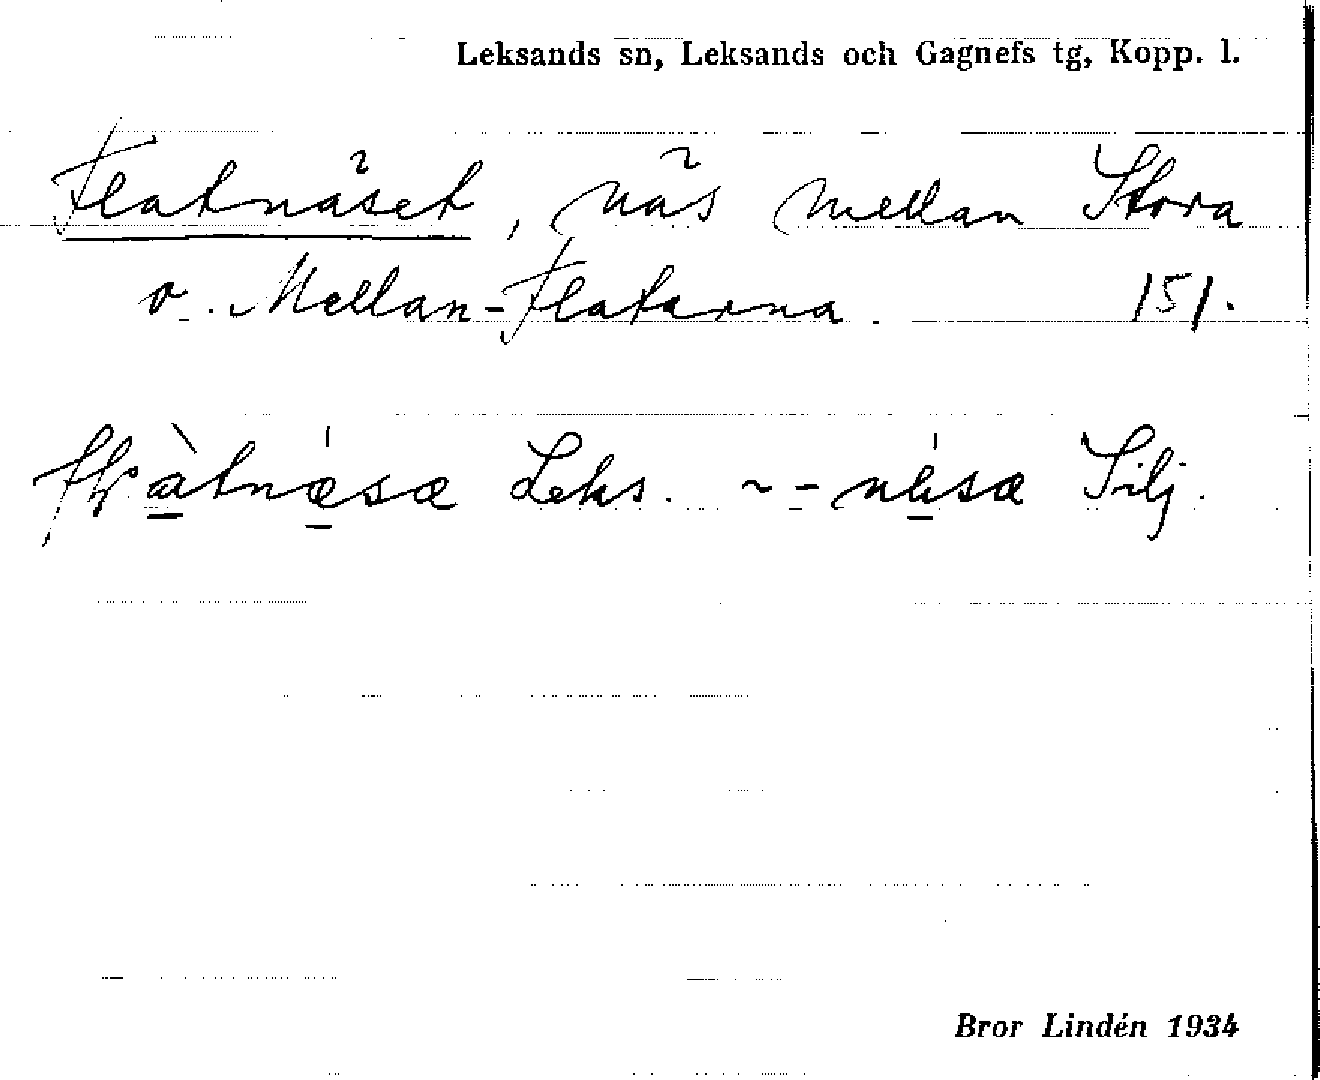 Leksands sn, Leksands och Gagnefs tg, Kopp. l.
Flatnäset, näs mellan Stora
o. Mellan-Flatarna. 151.
Leks. ~ - Silj.
Bror Lindén 1934